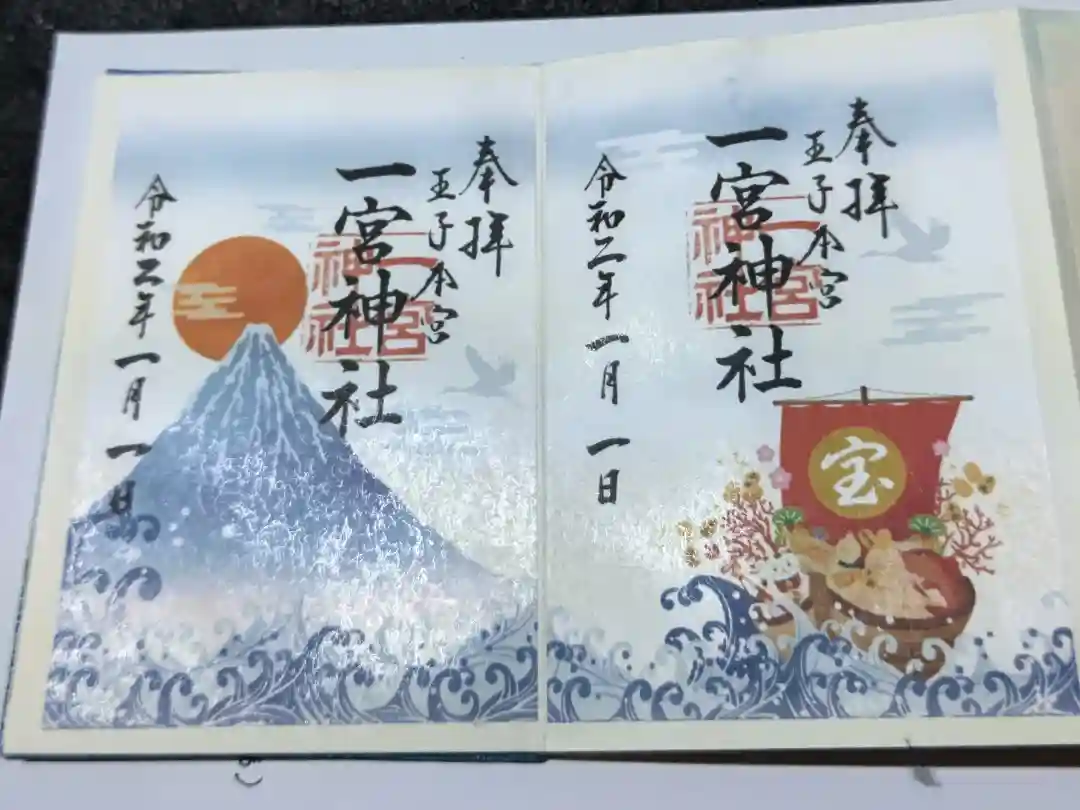 奉拝
王子本宮
一宮神社
一宮
神社
令和二年一月一日
宝
奉拝
王子本宮
一宮神社
一宮
神社
令和二年一月一日